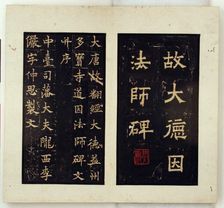 故大德因
法師碑
大唐故翻經大德益州
多寶寺道因法師碑文
并序
中臺司藩大夫隴西李
儼字仲思製文